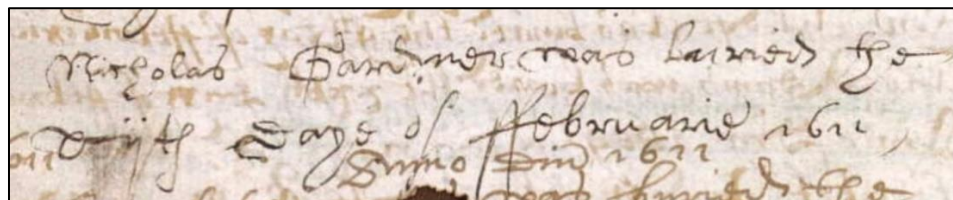 Nicholas Gardner was buried the
xijth daye of ffebruarie 1611
Anno Dni 1611
was buried the